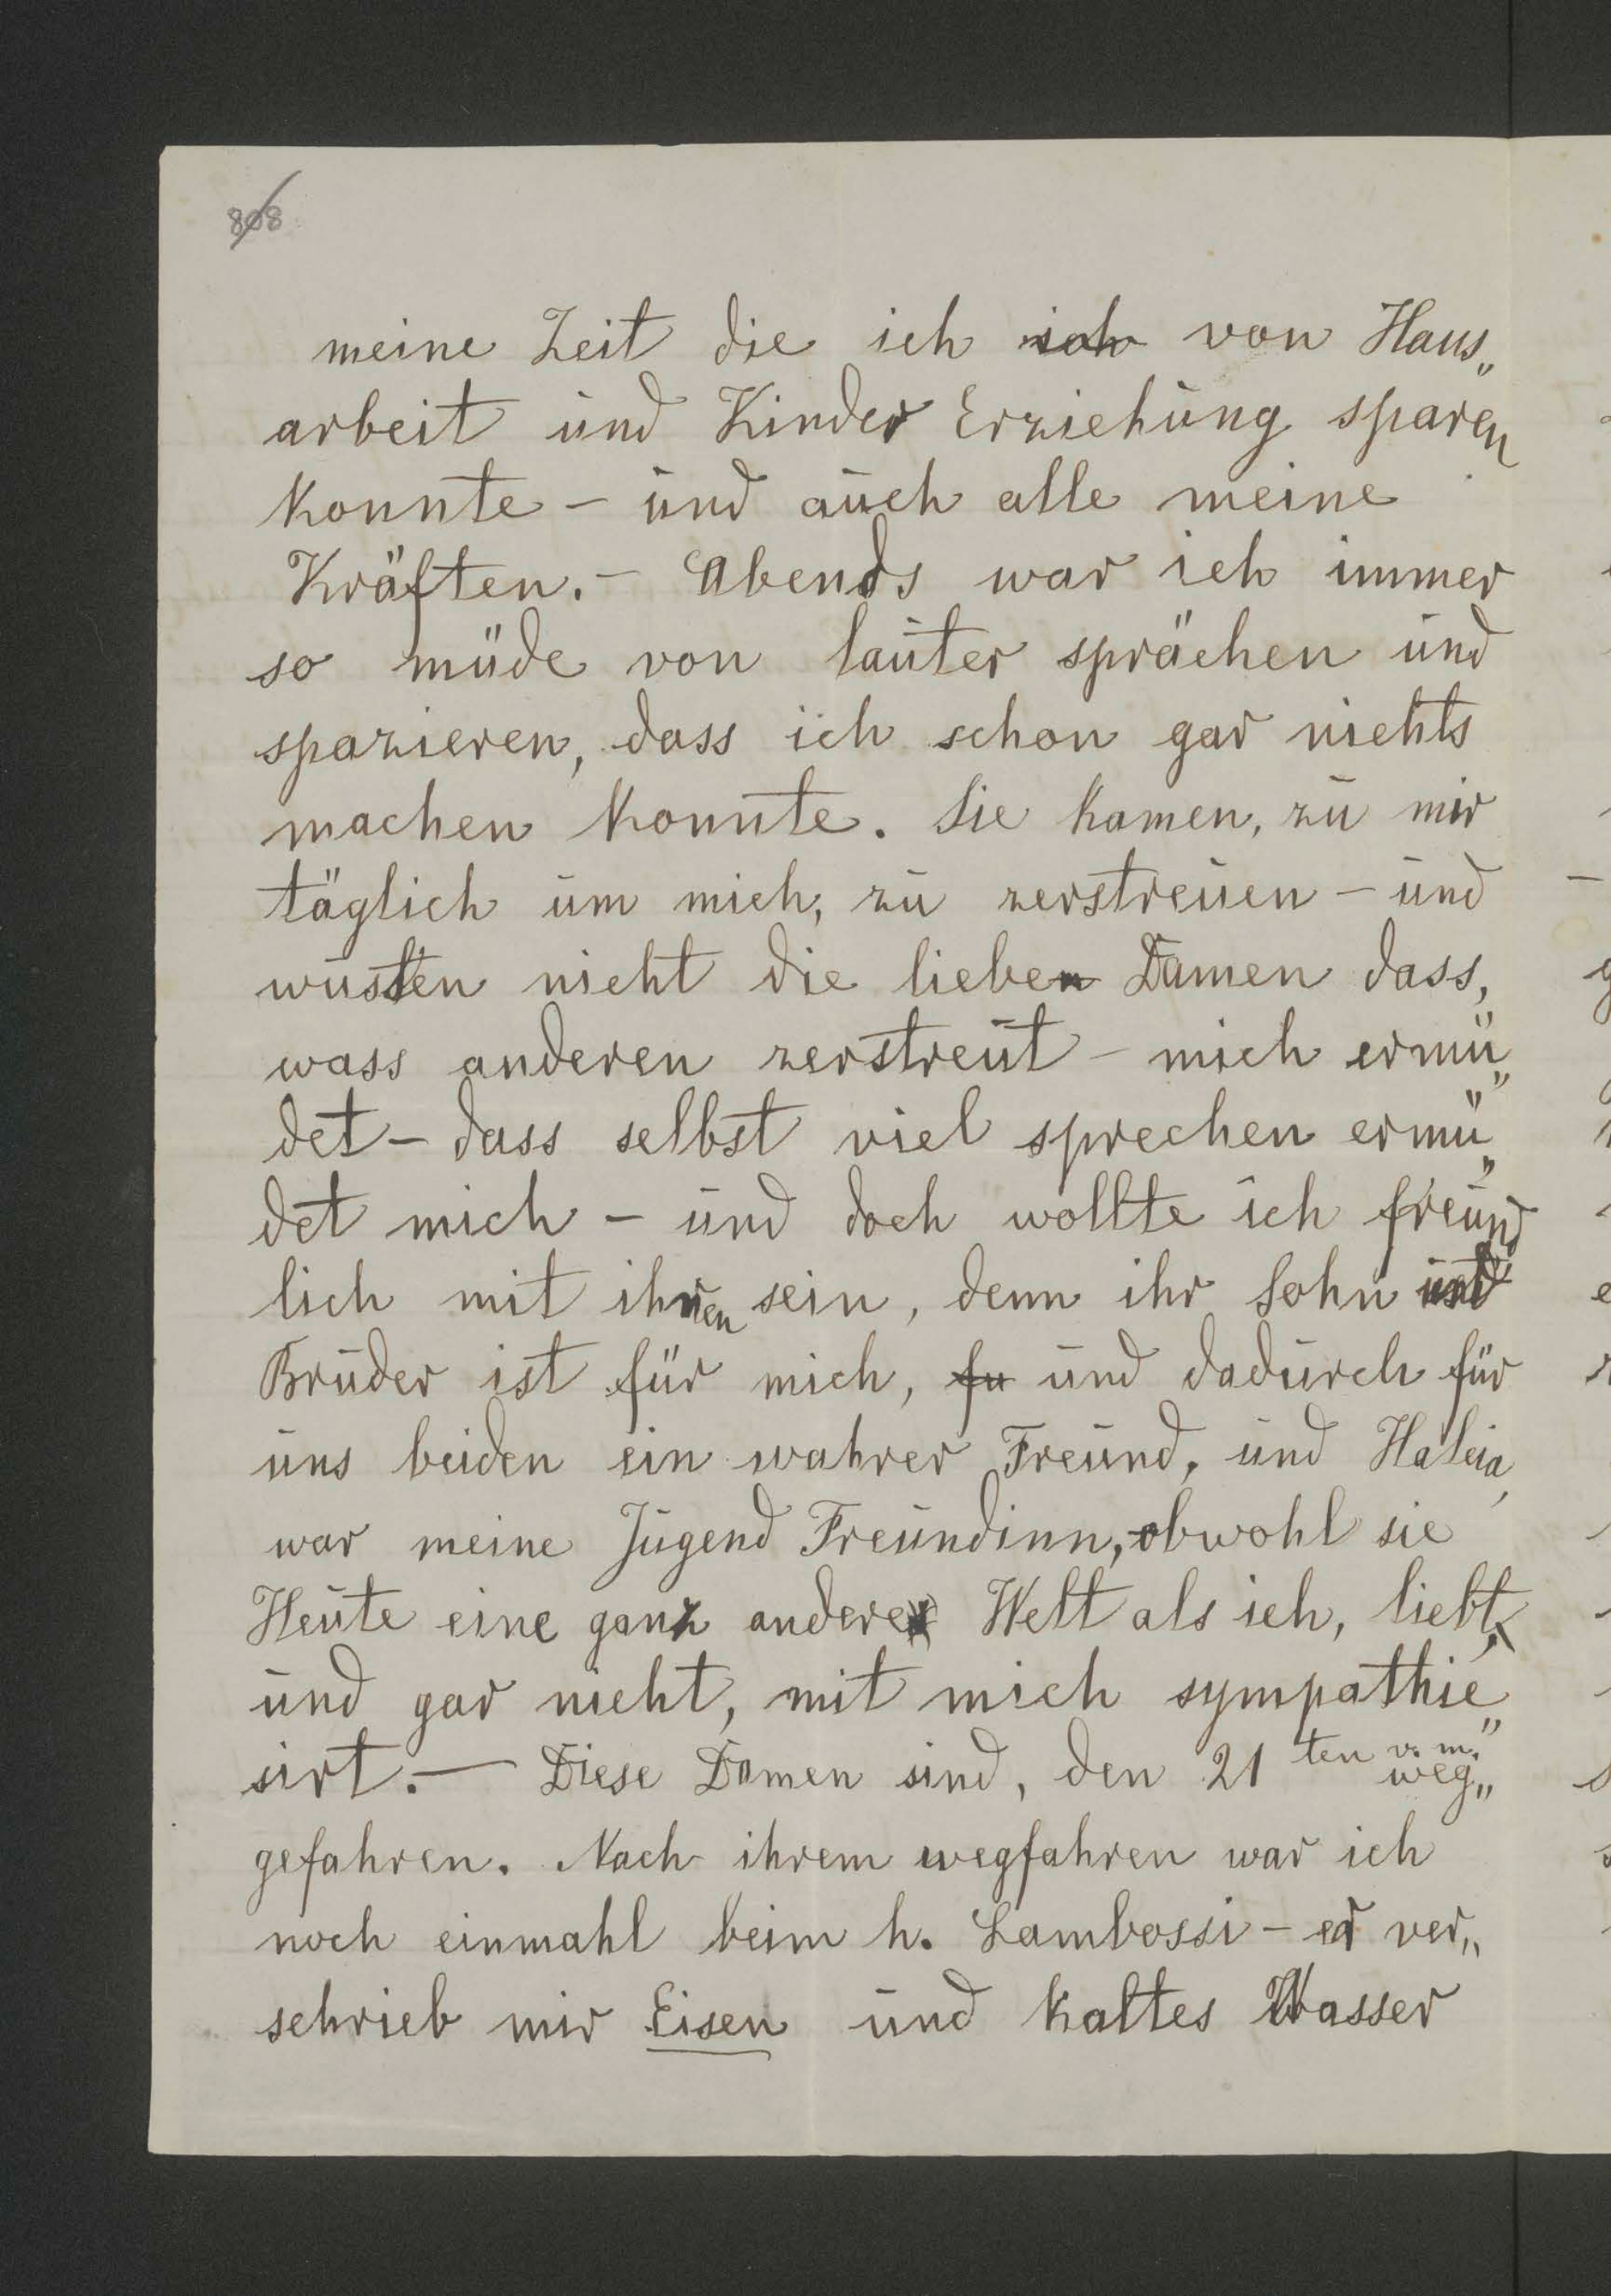 808
meine Zeit die ich ich von Haus„
arbeit und Kinder Erziehung sparen
konnte – und auch alle meine
Kräften. – Abends war ich immer
so müde von lauter sprächen und
spazieren, dass ich schon gar nichts
machen konnte. Sie kamen, zu mir
täglich um mich, zu zerstreuen – und
wusten nicht die lieben Damen dass,
wass anderen zerstreut – mich ermü„
det – dass selbst viel sprechen ermü„
det mich – und doch wollte ich freund
lich mit ihnen sein, denn ihr Sohn und
Bruder ist für mich, fu und dadurch für
uns beiden ein wahrer Freund, und Haleia,
war meine Jugend Freundinn, obwohl sie
Heute eine ganz andere Welt als ich, liebt,
und gar nicht, mit mich sympathie„
sirt. — Diese Damen sind, den 21 ten v. m. weg„
gefahren. Nach ihrem wegfahren war ich
noch einmahl beim h. Lambossi – er ver„
schrieb mir Eisen und kaltes Wasser